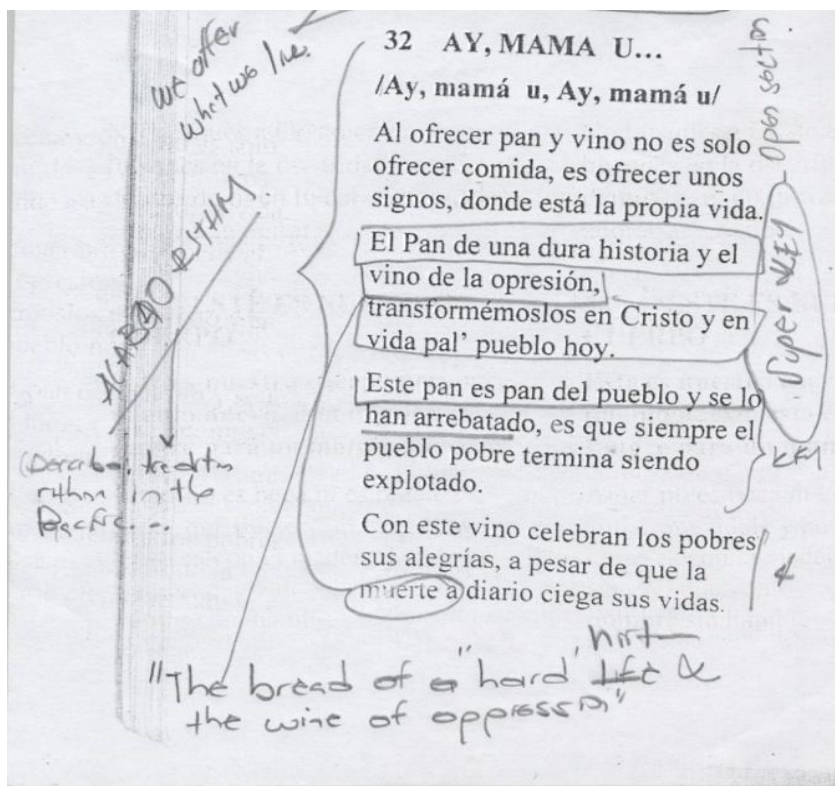 we offer
what we live.
32 AY, MAMA U...
/Ay, mamá u, Ay, mamá u/
Al ofrecer pan y vino no es solo
ofrecer comida, es ofrecer unos
signos, donde está la propia vida.
El Pan de una dura historia y el
vino de la opresión,
transformémoslos en Cristo y en
vida pal' pueblo hoy.
Este pan es pan del pueblo y se lo
han arrebatado, es que siempre el
pueblo pobre termina siendo
explotado.
Con este vino celebran los pobres
sus alegrías, a pesar de que la
muerte a diario ciega sus vidas.
Open section
Super KEY
KEY
RITHM
the
Pacific...
"The bread of a "hard" hist life &
the wine of oppression"